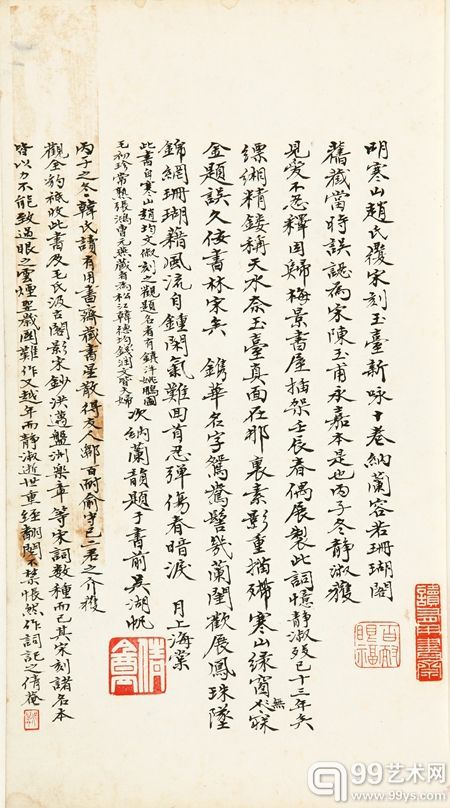 明寒山趙氏覆宋刻玉臺新詠十卷納蘭容若珊瑚閣
舊藏當時誤認為宋陳玉甫永嘉本是也丙子冬靜淑獲
見愛不忍釋因歸梅景書屋插架壬辰春偶展製此詞憶靜淑歿已十三年矣
縹緗精鏤稱天水奈玉臺真面在那裏素影重描殢寒山綠窗無寐
金題誤久佞書林宋矣 鐫華名字鴛鴦髻幾蘭閨歡展鳳珠墜
錦網珊瑚藉風流自鍾閨氣難回首忍彈傷春暗淚 月上海棠
次納蘭韻題于書前吳湖帆
此書自寒山趙均文俶刻之觀題名者有鎮洋姚鵬圖
毛初珍常熟張鴻曹元與藏者為松江韓德均錢潤文首夫婦
丙子之冬韓氏讀有用書齋藏書星散得友人鄒百耐俞守己二君之介獲
觀全豹祗收此書及毛氏汲古閣影宋鈔洪盤洲樂章等宋詞數種而已其宋刻諸名本
皆以力不能致過眼之雲煙翌歲國難作又越年而靜淑逝世重經翻閱不禁悵然作詞記之倩庵
倩盦
讀有用書齋
百耐眼福
99艺术网
www.99ys.com